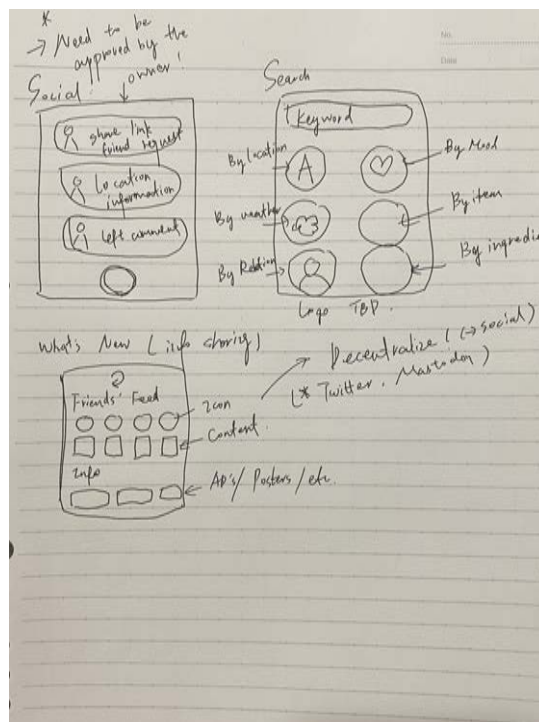 *
→ Need to be
approved by the
owner!
Social
share link
friend request
Location
information
left comment
Search
Keyword
By location
By Mood
By weather
By item
By Relation
By ingredie
Logo TBD.
What's New (info sharing)
Friends' Feed
Icon
Content.
Info
AD's / Posters / etc.
Decentralize (↔ social)
(* Twitter, Mastodon)
No.
Date